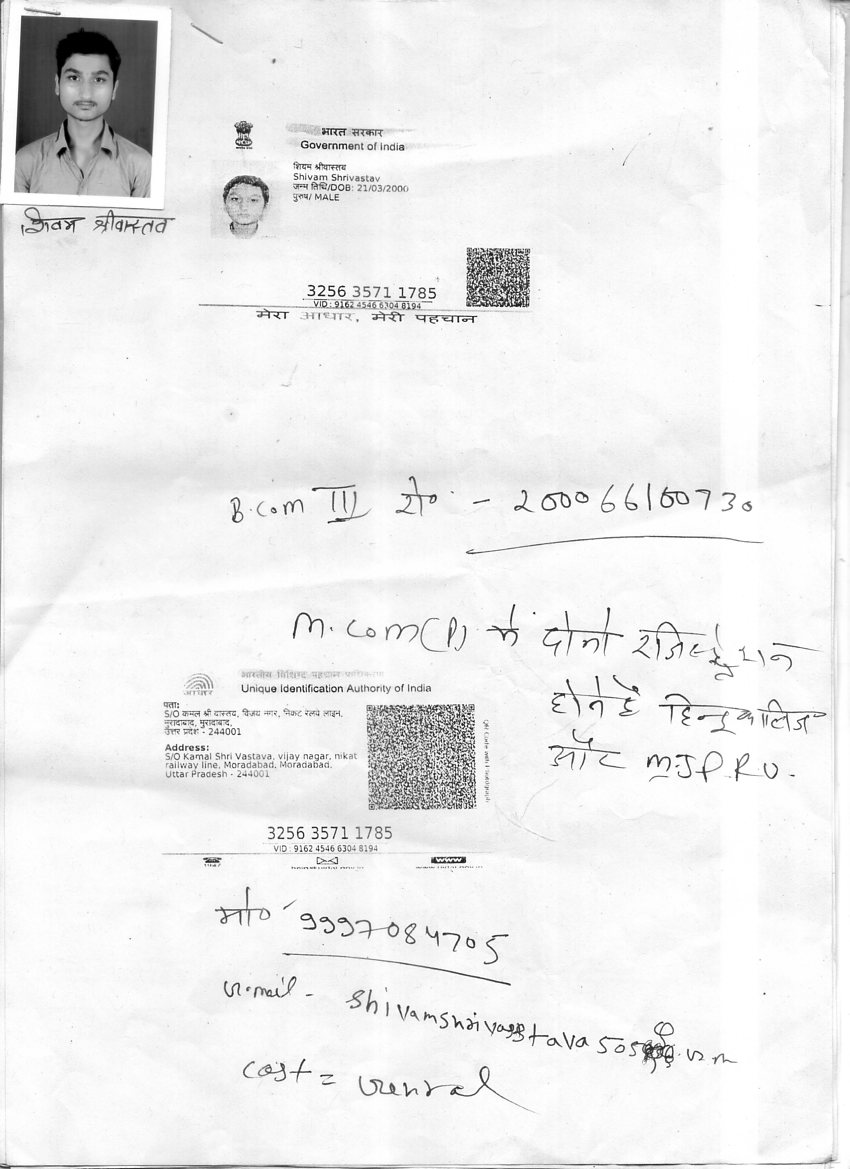 भारत सरकार
Government of India
शिवम श्रीवास्तव
Shivam Shrivastav
जन्म तिथि/DOB: 21/03/2000
पुरुष/ MALE
शिवम श्रीवास्तव
3256 3571 1785
VID : 9162 4546 6304 8194
मेरा आधार, मेरी पहचान
B.com III रो० - 200066100730
M.com(P) में दोनो रजिस्ट्रेशन
होने हैं हिन्दू कालिज
और M.J.P.R.U.
भारतीय विशिष्ट पहचान प्राधिकरण
Unique Identification Authority of India
आधार
पता:
S/O कमल श्री वास्तव, विजय नगर, निकट रेलवे लाइन,
मुरादाबाद, मुरादाबाद,
उत्तर प्रदेश - 244001
Address:
S/O Kamal Shri Vastava, vijay nagar, nikat
railway line, Moradabad, Moradabad,
Uttar Pradesh - 244001
3256 3571 1785
VID : 9162 4546 6304 8194
1947
www
मो० 9997084705
mail - shivamshrivastava505
cast =